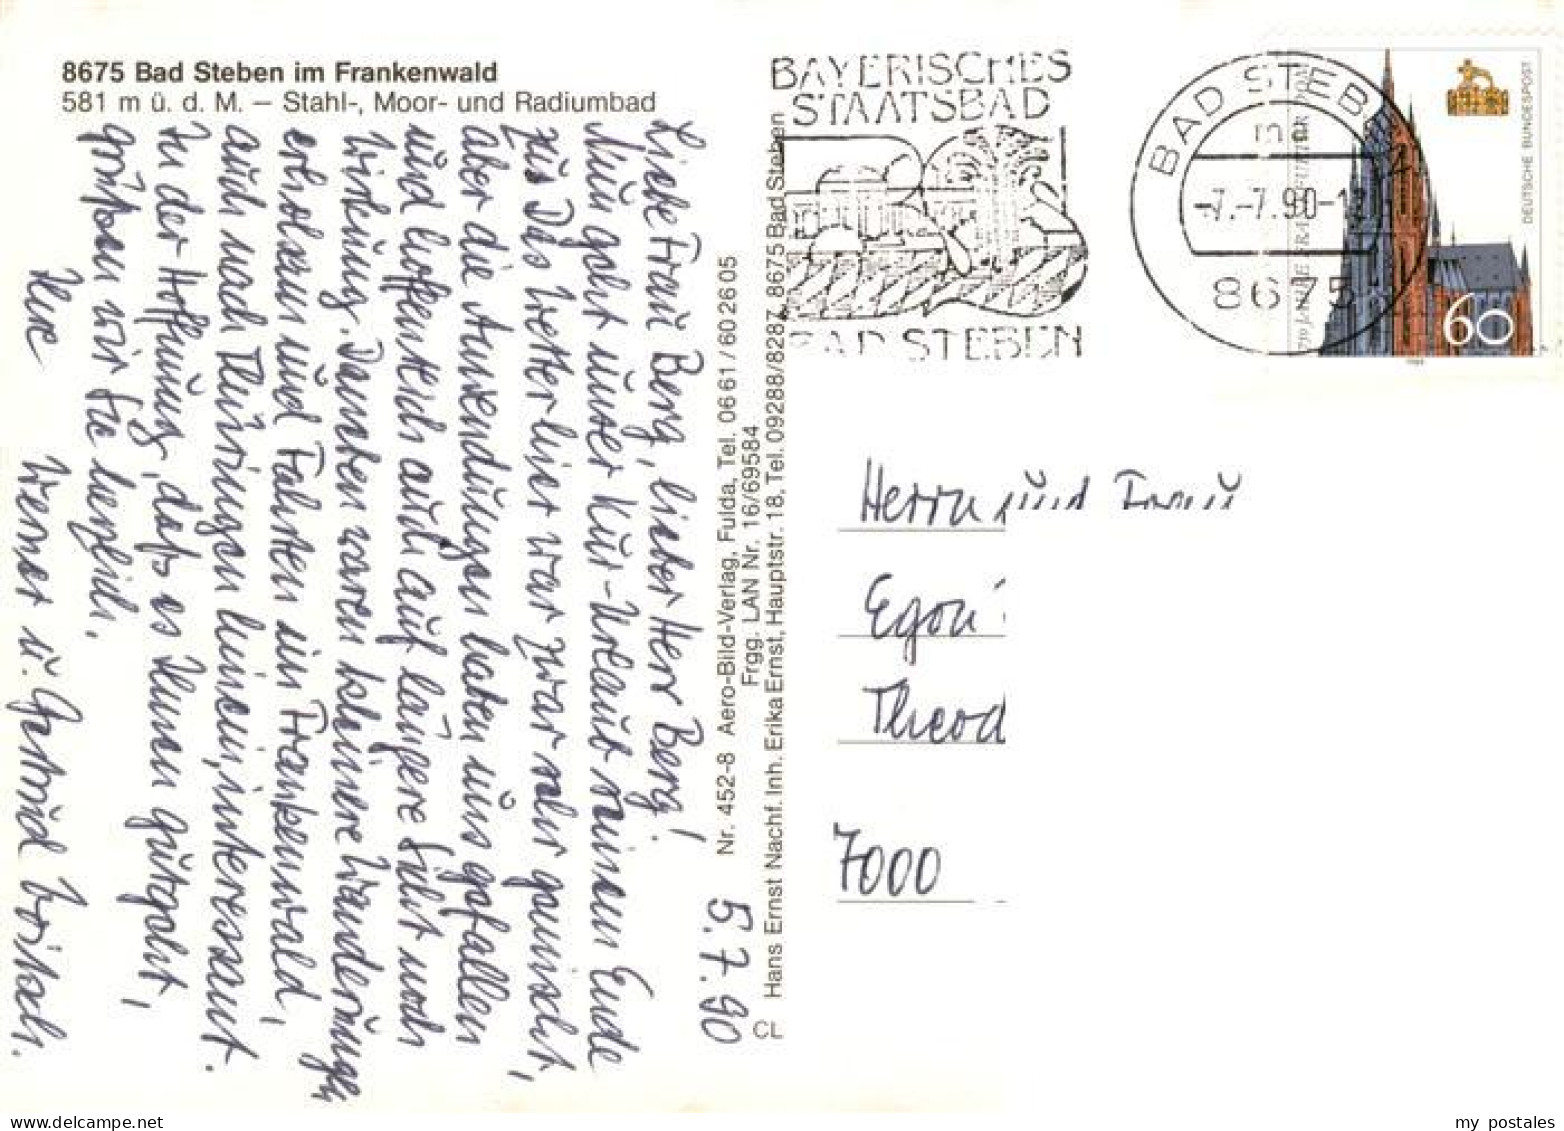 8675 Bad Steben im Frankenwald
581 m ü. d. M. – Stahl-, Moor- und Radiumbad
5.7.90
Liebe Frau Berg, lieber Herr Berg!
Nun geht unser Kur-Urlaub seinem Ende
zu. Das Wetter hier war zwar sehr gemischt,
aber die Anwendungen haben uns gefallen
und hoffentlich auch auf längere Sicht noch
Wirkung. Daneben waren kleinere Wanderungen
erholsam und Fahrten im Frankenwald,
auch nach Thüringen hinein, interessant.
In der Hoffnung, daß es Ihnen gutgeht,
grüßen wir Sie herzlich.
Ihre
Werner u. Gertrud
Nr. 452-8 Aero-Bild-Verlag, Fulda, Tel. 0661/602605
Frgg. LAN Nr. 16/69584
Hans Ernst Nachf. Inh. Erika Ernst, Hauptstr. 18, Tel. 09288/8287, 8675 Bad Steben
CL
BAYERISCHES
STAATSBAD
BAD STEBEN
BAD STEB
-7.-7.90-12
8675
DEUTSCHE BUNDESPOST
60
Herrn und Frau
Egon
Theod
7000
my postales